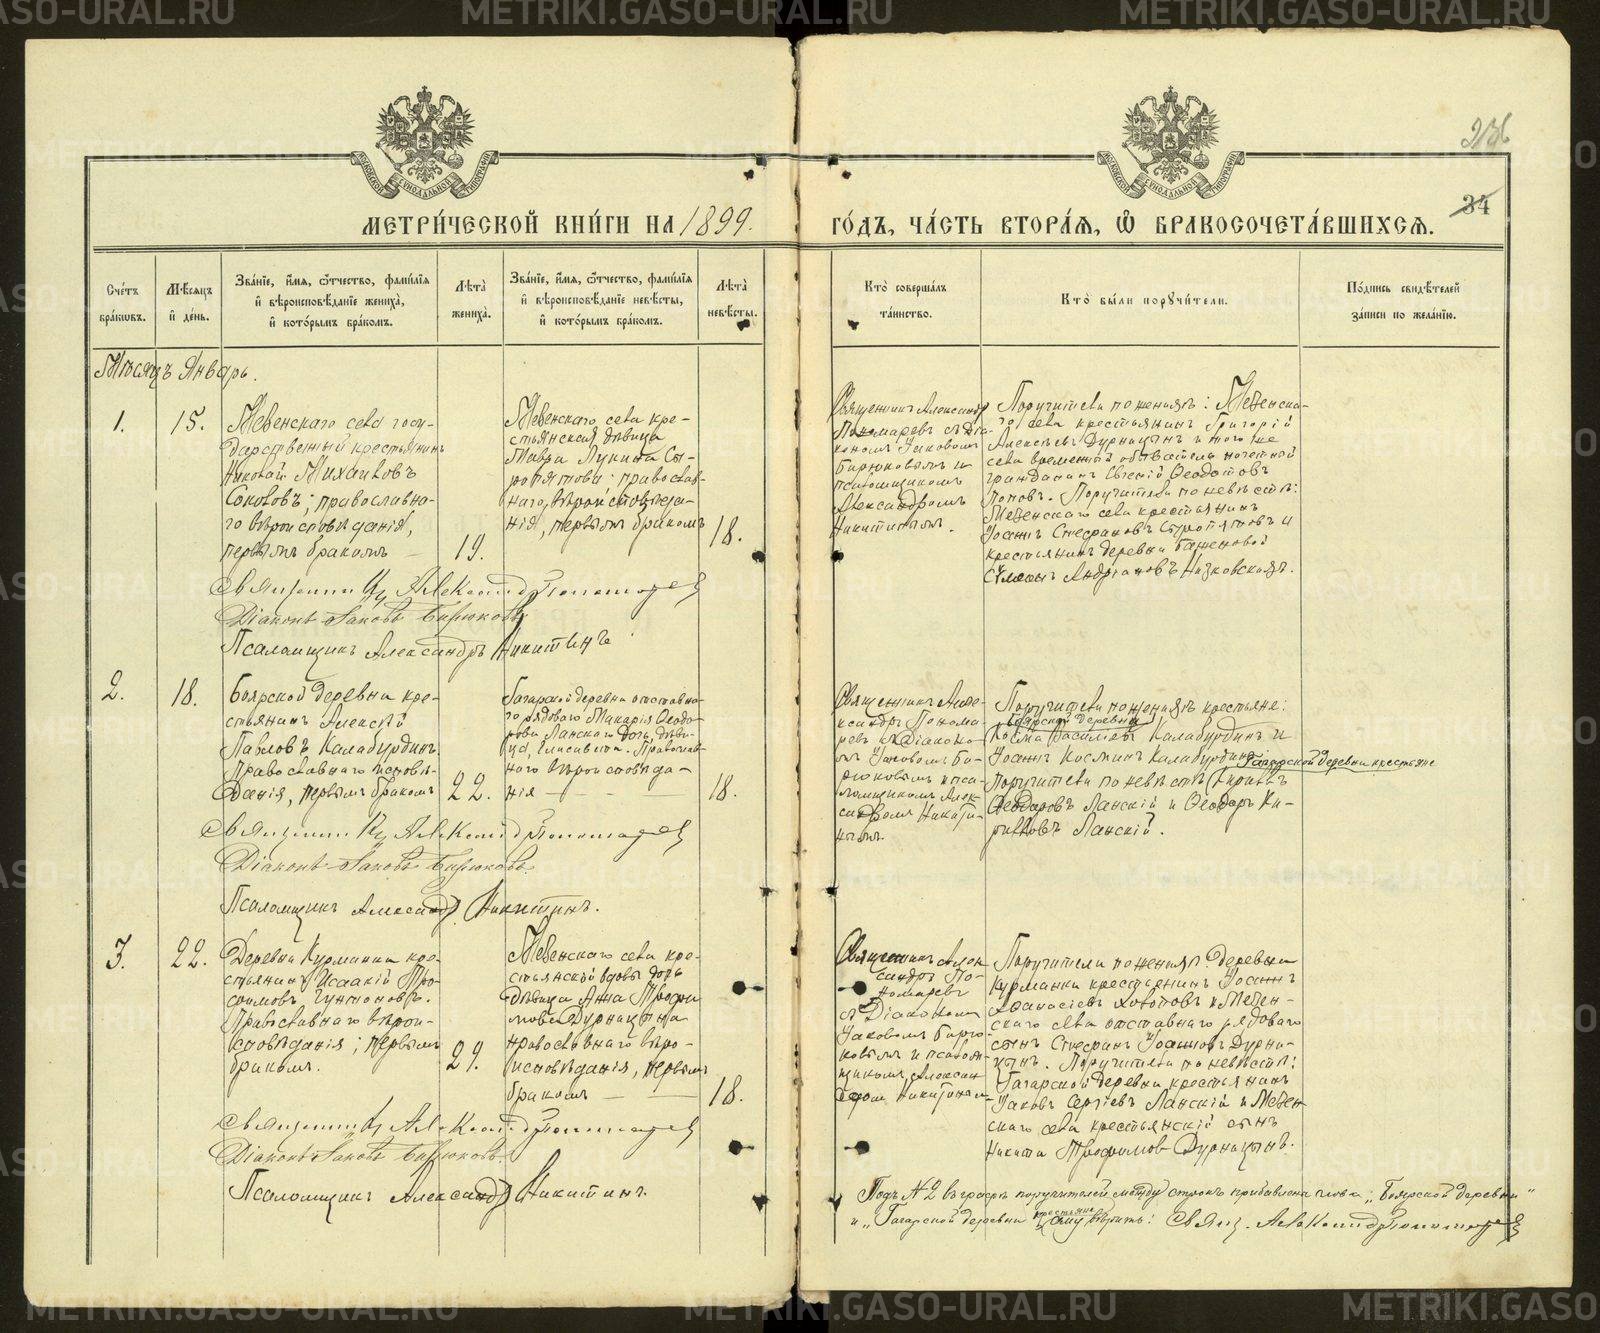 236
34
МЕТРИ́ЧЕСКОЙ КНИ́ГИ НА 1899.
ГО́ДЪ, ЧА́СТЬ ВТОРА́Я, Ѡ҆ БРАКОСОЧЕТА́ВШИХСЯ.
Сче́тъ бра́кωвъ.
Мѣ́сяцъ и҆ де́нь.
Зва́нїе, и҆́мя, ѻ҆́тчество, фами́лїя и҆ вѣроисповѣ́данїе жениха̀, и҆ кото́рымъ бра́комъ.
Лѣ́та жениха̀.
Зва́нїе, и҆́мя, ѻ҆́тчество, фами́лїя и҆ вѣроисповѣ́данїе невѣ́сты, и҆ кото́рымъ бра́комъ.
Лѣ́та невѣ́сты.
Кто̀ соверша́лъ та́инство.
Кто̀ бы́ли порꙋчи́тели.
По́дпись свидѣ́телей за́писи по жела́нїю.
Мѣсяцъ Январь.
1.
15.
Мезенскаго села госу-
дарственный крестьянинъ
Николай Михаиловъ
Соколовъ; православна-
го вѣроисповѣданія,
первымъ бракомъ —
19.
Мезенскаго села кре-
стьянская дѣвица
Мавра Лукина Сы-
ропятова; православ-
наго вѣроисповѣда-
нія, первымъ бракомъ
18.
Священникъ Александръ
Пономаревъ съ діа-
кономъ Іаковомъ
Бирюковымъ и
псаломщикомъ
Александромъ
Никитинымъ.
Поручители по женихѣ: Мезенска-
го села крестьянинъ Григорій
Алексѣевъ Дурницынъ и того же
села временной обыватель почетной
гражданинъ Евсевій Ѳеодотовъ
Поповъ. Поручители по невѣстѣ:
Мезенскаго села крестьянинъ
Іоаннъ Стефановъ Сыропятовъ и
крестьянинъ деревни Баженовой
Симеонъ Андріановъ Низковскихъ.
Священникъ Александръ Пономаревъ
Діаконъ Іаковъ Бирюковъ
Псаломщикъ Александръ Никитинъ
2.
18.
Боярской деревни кре-
стьянинъ Алексѣй
Павловъ Калабурдинъ
Православнаго исповѣ-
данія, первымъ бракомъ
22.
Гагарской деревни отставна-
го рядового Макарія Ѳеодо-
рова Ланскаго дочь дѣви-
ца Елисавета. Православ-
наго вѣроисповѣда-
нія — — —
18.
Священникъ Але-
ксандръ Понома-
ревъ съ діаконо-
мъ Іаковомъ Би-
рюковымъ и пса-
ломщикомъ Алек-
сандромъ Никити-
нымъ.
Поручители по женихѣ крестьяне:
Боярской деревни
Косма Василіевъ Калабурдинъ и
Іоаннъ Косминъ Калабурдинъ
Гагарской деревни крестьяне
Поручители по невѣстѣ Кириллъ
Ѳеодоровъ Ланскій и Ѳеодоръ Ки-
рилловъ Ланскій.
Священникъ Александръ Пономаревъ
Діаконъ Іаковъ Бирюковъ.
Псаломщикъ Александръ Никитинъ.
3.
22.
Деревни Курманки кре-
стьянинъ Исаакій Тро-
фимовъ
Православнаго вѣрои-
сповѣданія; первымъ
бракомъ.
29.
Мезенскаго села кре-
стьянской вдовы дочь
дѣвица Анна Трофи
мова Дурницына
православнаго вѣро-
исповѣданія, первымъ
бракомъ — —
18.
Священникъ Алек
сандръ По-
номаревъ
съ Діакономъ
Іаковомъ Бирю-
ковымъ и псалом-
щикомъ Алексан
дромъ Никитиным-
Поручители по женихѣ: деревни
Курманки крестьянинъ Іоаннъ
Аѳанасіевъ и Мезен-
скаго села отставнаго рядоваго
сынъ Стефанъ Іоанновъ Дурни-
цынъ. Поручители по невѣстѣ:
Гагарской деревни крестьянинъ
Іаковъ Сергіевъ Ланскій и Мезен
скаго села крестьянскій сынъ
Никита Трофимов Дурницынъ.
Священникъ Александръ Пономаревъ
Діаконъ Іаковъ Бирюковъ.
Псаломщикъ Александръ Никитинъ.
Подъ № 2 въ графѣ поручителей между строкъ прибавлена слова „Боярской деревни“
и „Гагарской деревни крестьяне“ сему вѣрить: Свящ. Александръ Пономаревъ
METRIKI.GASO-URAL.RU